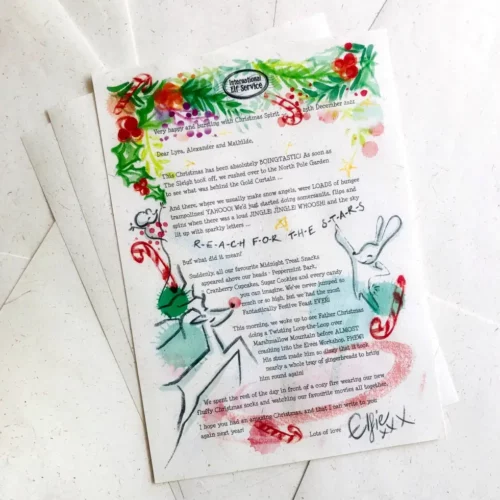 International
Elf Service
Very happy and bursting with Christmas Spirit
25th December 2021
Dear Lyra, Alexander and Mathilde,
This Christmas has been absolutely BOINGTASTIC! As soon as
The Sleigh took off, we rushed over to the North Pole Garden
to see what was behind the Gold Curtain ...
And there, where we usually make snow angels, were LOADS of bungee
trampolines! YAHOOO! We'd just started doing somersaults, flips and
spins when there was a loud JINGLE! JINGLE! WHOOSH! and the sky
lit up with sparkly letters ...
R-E-A-C-H F-O-R T-H-E S-T-A-R-S
But what did it mean?
Suddenly, all our favourite Midnight Treat Snacks
appeared above our heads - Peppermint Bark,
Cranberry Cupcakes, Sugar Cookies and every candy
you can imagine. We've never jumped so
much or so high, but we had the most
Fantastically Festive Feast EVER!
This morning, we woke up to see Father Christmas
doing a Twisting Loop-the-Loop over
Marshmallow Mountain before ALMOST
crashing into the Elves Workshop. PHEW!
His stunt made him so dizzy that it took
nearly a whole tray of gingerbreads to bring
him round again!
We spent the rest of the day in front of a cozy fire wearing our new
fluffy Christmas socks and watching our favourite movies all together.
I hope you had an amazing Christmas, and that I can write to you
again next year!
Lots of love
Elfie xxx